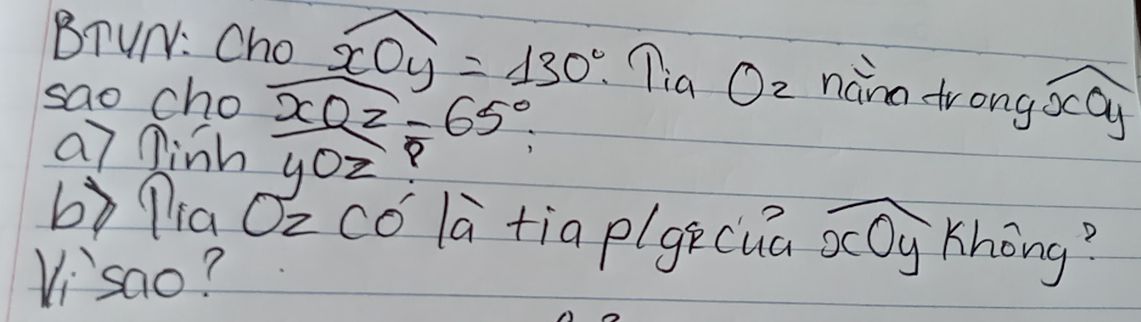 BTVN: Cho xOy = 130°. Tia Oz nằm trong xOy
sao cho xOz = 65°.
a) Tính yOz ?
b) Tia Oz có là tia p/g của xOy không?
Vì sao?